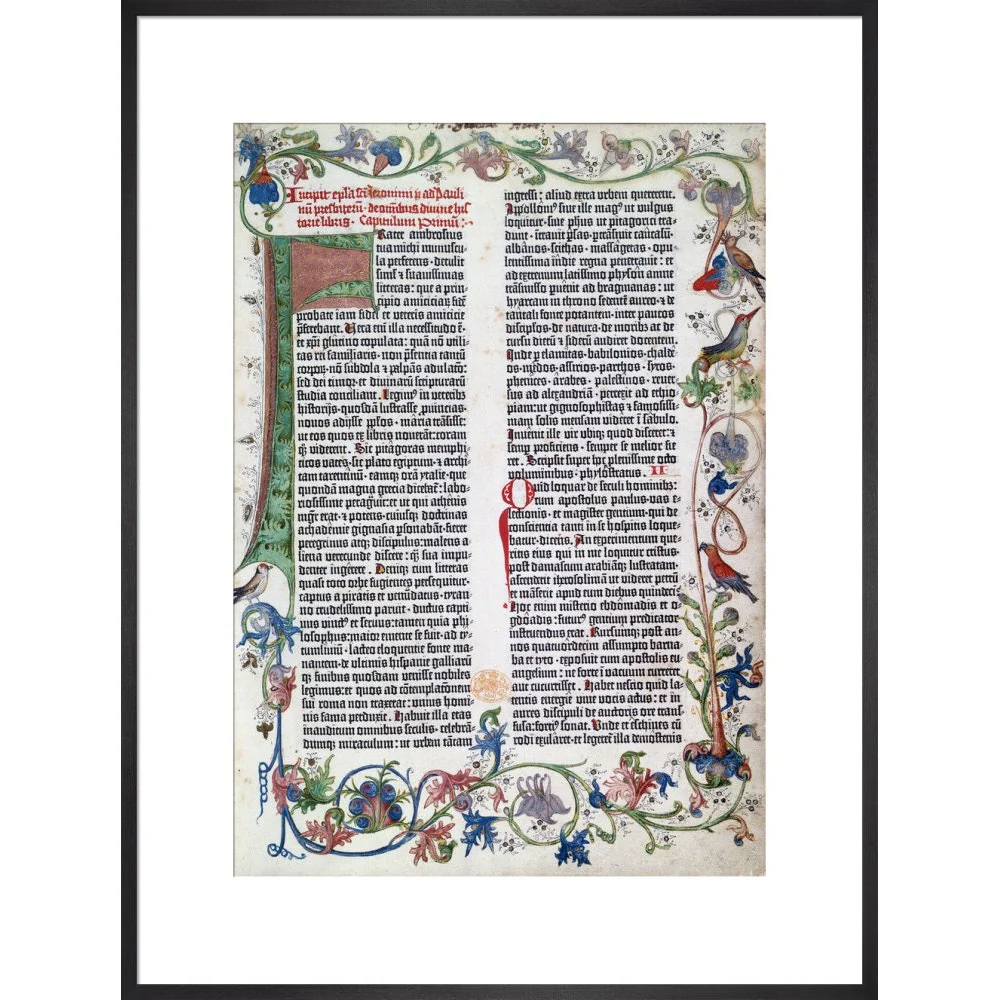 Incipit epl̃a sc̃i ieronimi p̃ ad Pauli
nũ presbiterũ · de om̃ibus diuine his
torie libris · Capitulum Primũ :-
FRater ambrosius
tua michi munuscu
la perferens · detulit
sim̃l ⁊ suauissimas
litteras : que a prin-
cipio amiciciaꝝ fidẽ
probate iam fidei et veteris amicicie
p̃ferebant . Uera eñ illa necessitudo ẽ·
et xp̃i glutino copulata : quã nõ vtili-
tas rei familiaris · nõ p̃sentia tantũ
corporꝝ · nõ subdola ⁊ palpãs adulatõ:
sed dei timor · et diuinarũ scripturarũ
studia conciliant . Legimꝰ in veteribꝰ
historijs · quosdã lustrasse ꝓuincias·
nouos adijsse pp̃los · maria trãsisse:
ut eos quos ex libris nouerãt : coram
qꝫ viderent . Sic pitagoras memphi-
ticos vates · sic plato egiptum · et archi-
tam tarentinũ · eamqꝫ orã ytalie · que
quondã magna grecia dicebat̃ : labo-
riosissime peragrauit : et ut qui athenis
mg̃r erat · ⁊ potens · cuiusqꝫ doctrinas
achademie gignasia p̃sonabãt · fieret
peregrinus atqꝫ discipulus : malens a-
liena verecunde discere : q̃ꝫ sua impu-
denter ingerere . Deniqꝫ cum litteras
quasi toto orbe fugientes persequitur·
captus a piratis et venundatus · tyran-
no crudelissimo paruit · ductus capti-
uus vinctꝰ et seruus : tamen quia phi-
losophus : maior emente se fuit · ad ty-
tumliuiũ · lacteo eloquentie fonte ma-
nantem · de vltimis hispanie galliarũ
qꝫ finibus quosdam venisse nobiles
legimus : et quos ad cõtemplatõnem
sui roma non traxerat : vnius homi-
nis fama perduxit . Habuit illa etas
inauditum omnibus seculis · celebrã-
dumqꝫ miraculum : ut vrbem tãtam
ingressi : aliud extra vrbem quererent.
Appollonꝰ siue ille magꝰ ut vulgus
loquitur · siue ph̃us ut pitagorici tra-
dunt · ĩtrauit p̃sas · p̃transiuit caucasũ
albanos · scithas · massagetas · opu-
lentissima indie regna penetrauit : et
ad extremum latissimo physon amne
trãsmisso puenit ad bragmanas : ut
hyarcam in throno sedentẽ aureo · ⁊ de
tantali fonte potantem · inter paucos
discipl̃os · de natura · de moribꝫ ac de
cursu dierũ ⁊ siderũ audiret docentem.
Inde ꝑ elamitas · babilonios · chalde-
os · medos · assirios · parthos · syros·
phenices · arabes · palestinos · reuer-
sus ad alexandriã · perrexit ad ethio-
piam : ut gignosophistas ⁊ famosissi-
mam solis mensam videret ĩ sabulo.
Inuenit ille vir vbiqꝫ quod disceret : ⁊
semꝑ proficiens · semper se melior fie-
ret . Scripsit super hoc plenissime octo
voluminibus · phylostratus . II
QUid loquar de seculi hominibꝫ:
cum apostolus paulus · vas e-
lectionis · et magister gentium · qui de
conscientia tanti in se hospitis loque-
batur · dicens . An experimentum que-
ritis eius qui in me loquitur cristus·
post damascum arabiãqꝫ lustratam·
ascenderit iherosolimã ut videret petrũ
et mãserit apud eum diebus quindeci.
Hoc enim misterio ebdõmadis et o-
gdõadis : futurꝰ gentium predicator
instruendus erat . Rursũqꝫ post an-
nos quatuordecim assumpto barna-
ba et tyto · exposuit cum apostolis eu-
angelium : ne forte ĩ vacuum curreret
aut cucurrisset . Habet nescio quid la-
tentis energie viue vocis actus : et in
aures discipuli de auctoris ore trans-
fusa : forciꝰ sonat . Unde et eschines cũ
rodi exularet · et legeret̃ illa demostenis